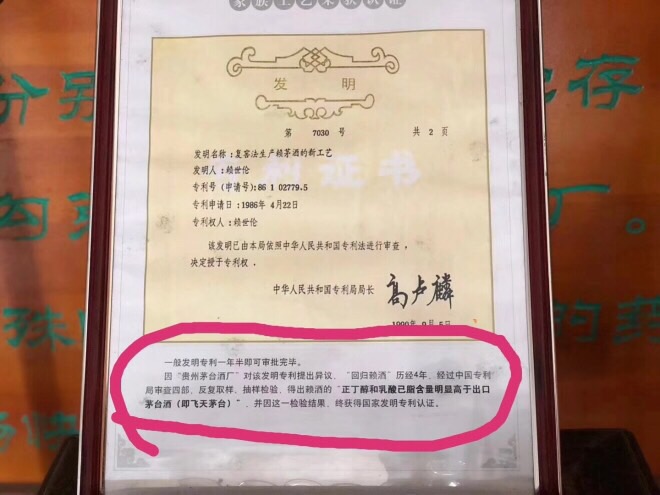 家族工艺荣获认证
发 明
第 7030 号 共 2 页
发明名称：复窖法生产赖茅酒的新工艺
发明人：赖世伦
利证书
专利号(申请号)：86 1 02779.5
专利申请日：1986年4月22日
专利权人：赖世伦
该发明已由本局依照中华人民共和国专利法进行审查，
决定授于专利权．
中华人民共和国专利局局长 高卢麟
1990 9 5
一般发明专利一年半即可审批完毕。
因“贵州茅台酒厂”对该发明专利提出异议，“回归赖酒”历经4年，经过中国专利
局审查四部，反复取样、抽样检验，得出赖酒的“正丁醇和乳酸已脂含量明显高于出口
茅台酒（即飞天茅台）”，并因这一检验结果，终获得国家发明专利认证。
分别
存
勾
厂。
殊
的